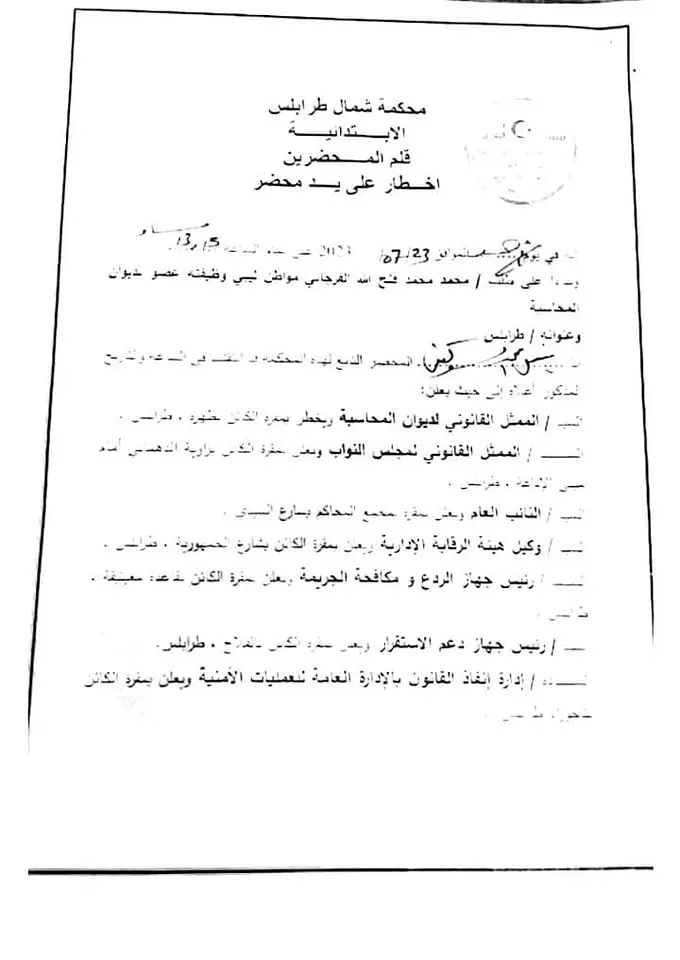 محكمة شمال طرابلس
الابتدائية
قلم المحضرين
اخطار على يد محضر
إنه في يوم الموافق 07/23/ 2023 الساعة 13,15
وبناء على طلب / محمد محمد فتح الله الفرجاني مواطن ليبي وظيفته عضو بديوان
المحاسبة
وعنوانه / طرابلس
المحضر التابع لهذه المحكمة قد انتقلت في الساعة والتاريخ
المذكور أعلاه إلى حيث يعلن:
السيد / الممثل القانوني لديوان المحاسبة ويخطر بمقره الكائن بظهرة ، طرابلس .
الســـيد / الممثل القانوني لمجلس النواب ويعلن بمقره الكائن بزاوية الدهماني أمام
مبنى الإذاعة ، طرابلس .
السيد / النائب العام ويعلن بمقره بمجمع المحاكم بشارع السيدي .
السيد / وكيل هيئة الرقابة الإدارية ويعلن بمقره الكائن بشارع الجمهورية ، طرابلس .
الســيد / رئيس جهاز الردع و مكافحة الجريمة ويعلن بمقره الكائن بقاعدة معيتيقة ،
طرابلس .
السيد / رئيس جهاز دعم الاستقرار ويعلن بمقره الكائن بالفلاح ، طرابلس.
الســادة / إدارة إنفاذ القانون بالإدارة العامة للعمليات الأمنية ويعلن بمقره الكائن
طرابلس .